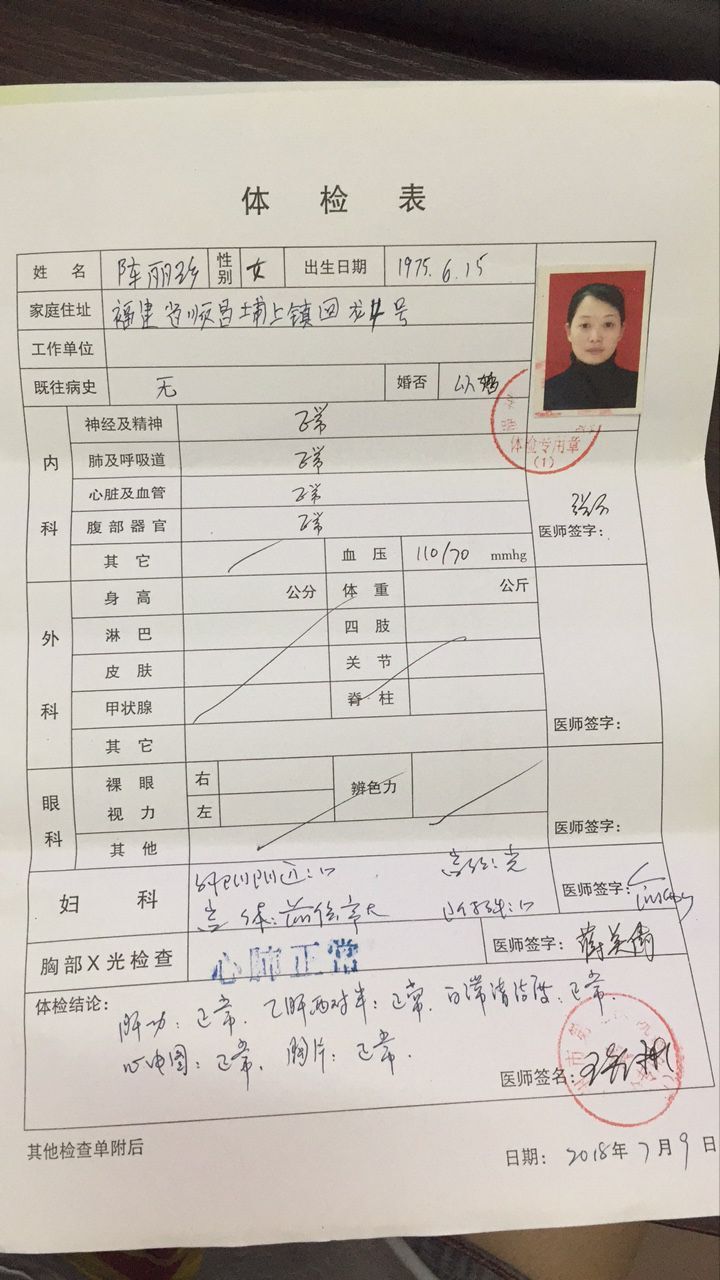 体检表
姓名 陈丽珍 性别 女 出生日期 1975.6.15
家庭住址 福建省顺昌埔上镇回龙 号
工作单位
既往病史 无 婚否 以婚
体检专用章
(1)
内科 神经及精神 正常
肺及呼吸道 正常
心脏及血管 正常
腹部器官 正常
医师签字:
其它 血压 110/70 mmhg
外科 身高 公分 体重 公斤
淋巴 四肢
皮肤 关节
甲状腺 脊柱
其它 医师签字:
眼科 裸眼视力 右 辨色力
左
其他 医师签字:
妇科 医师签字:
胸部X光检查 心肺正常 医师签字:
体检结论:
肝功:正常. 乙肝两对半:正常. 白带清洁度:正常.
心电图:正常. 胸片:正常.
医师签名:
其他检查单附后
日期: 2018年7月9日